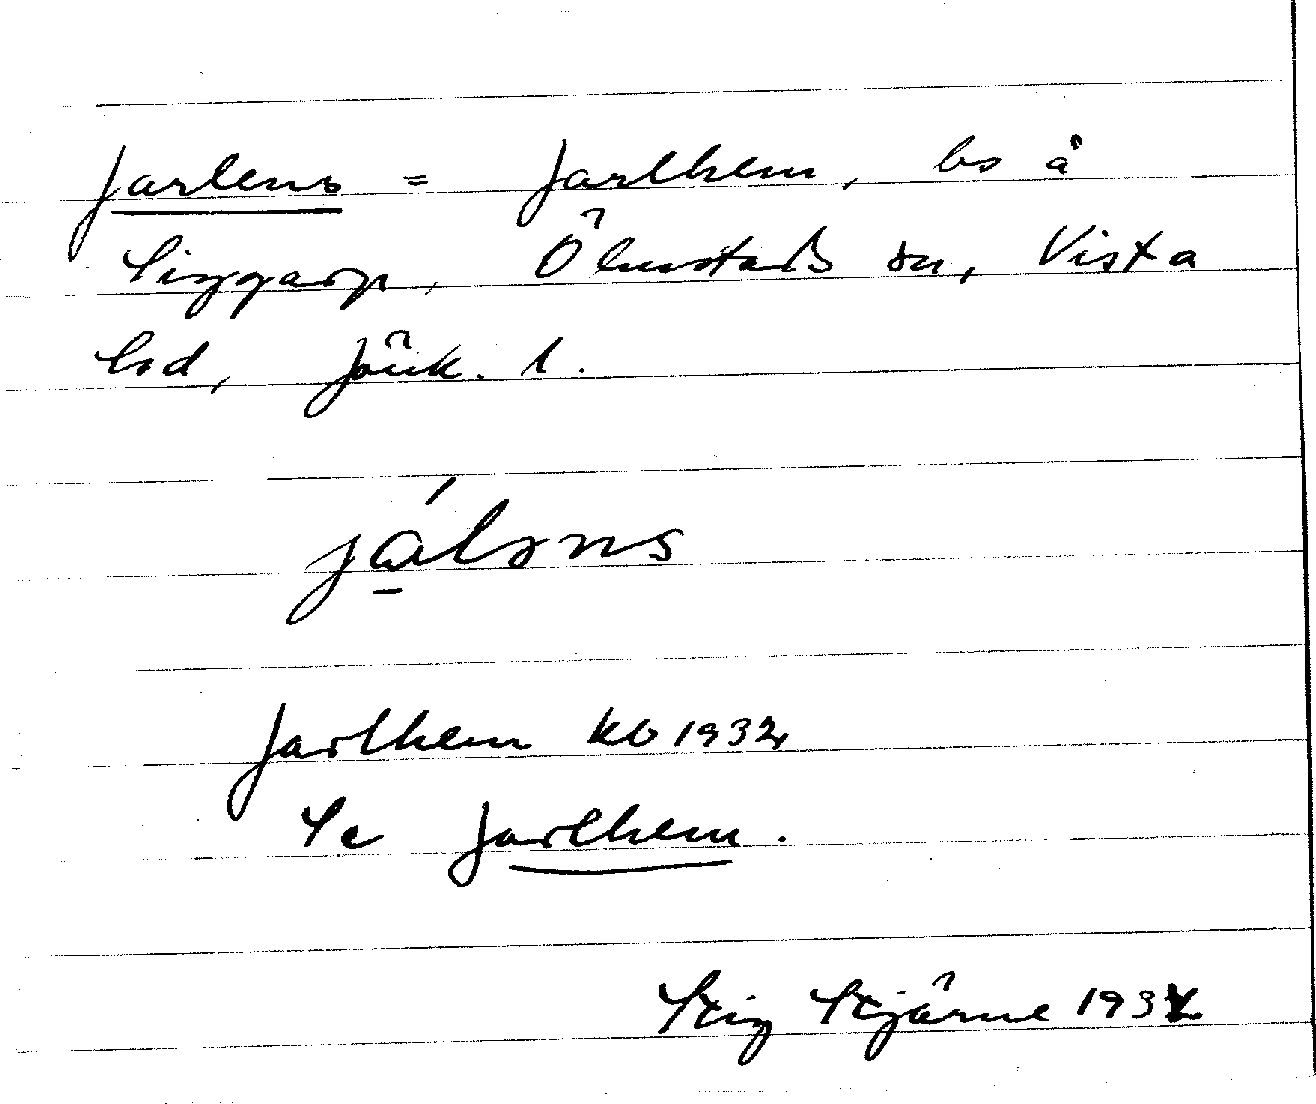 Jarlens = Jarlhem, bs å
Siggarp, Ölmstads sn, Vista
hd, Jönk. l.
jálǝns
Jarlhem kb 1932
Se Jarlhem.
Stig Stjärne 193